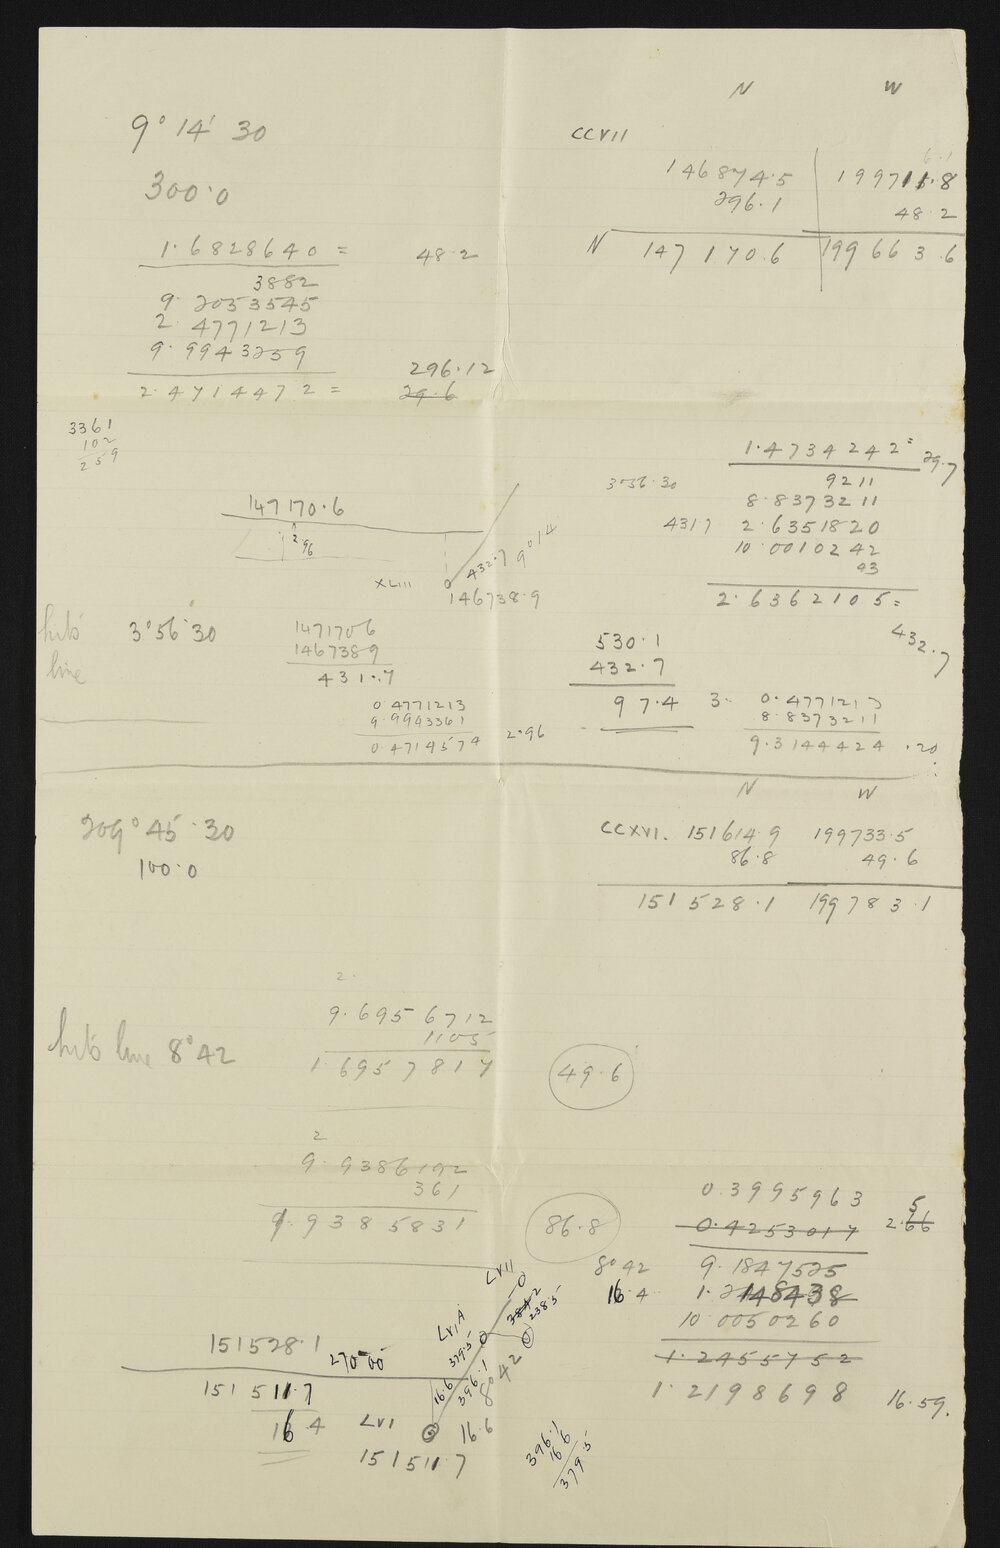 N W
9° 14' 30
CCVII
300.0
146874.5 199711.8
296.1 48.2
N 147170.6 199663.6
1.6828640 = 48.2
3882
9.2053545
2.4771213
9.9943259
296.12
2.4714472 = 29.6
3361
102
259
1.4734242 = 29.7
3.56.30 9211
8.8373211
4317 2.6351820
10.0010242
43
2.6362105 =
432.7
147170.6
2.96
432.7 9°14
XLIII
146738.9
hits 3°56'30
line
147170.6
146738.9
431.7
530.1
432.7
97.4
3. 0.4771213
8.8373211
9.3144424 .20
0.4771213
9.9943361
0.4714574 2.96
N W
209° 45' 30
100.0
CCXVI. 151614.9 199733.5
86.8 49.6
151528.1 199783.1
2.
9.6956712
1105
1.6957817 49.6
hits line 8°42
2
9.9386192
361
9.9385831 86.8
0.3995963
0.4253017 2.66
5
8°42 9.1847525
16.4 1.2148438
10.0050260
1.2455752
1.2198698 16.59.
LVII
384.2
238.5
LVIA
379.5
16.6
396.1
8°42
151528.1
270°00
151511.7
16.4
LVI
16.6
151511.7
396.1
16.6
379.5